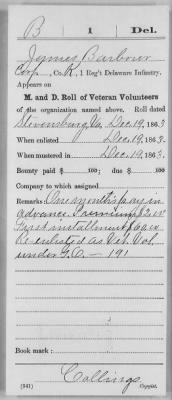 B | 1 | Del.
James Barbour
Corp., Co. K, 1 Reg't Delaware Infantry.
Appears on
M. and D. Roll of Veteran Volunteers
of the organization named above. Roll dated
Stevensburg, Va. Dec. 19, 1863
When enlisted Dec. 19, 1863.
When mustered in Dec. 19, 1863.
Bounty paid $ 100; due $ 100
Company to which assigned
Remarks: One month's pay in
advance. Premium $2.00
First installment $60.00
Re-enlisted as Vet. Vol.
under G.O. — 191
Book mark:
Collings
(941) Copyist.